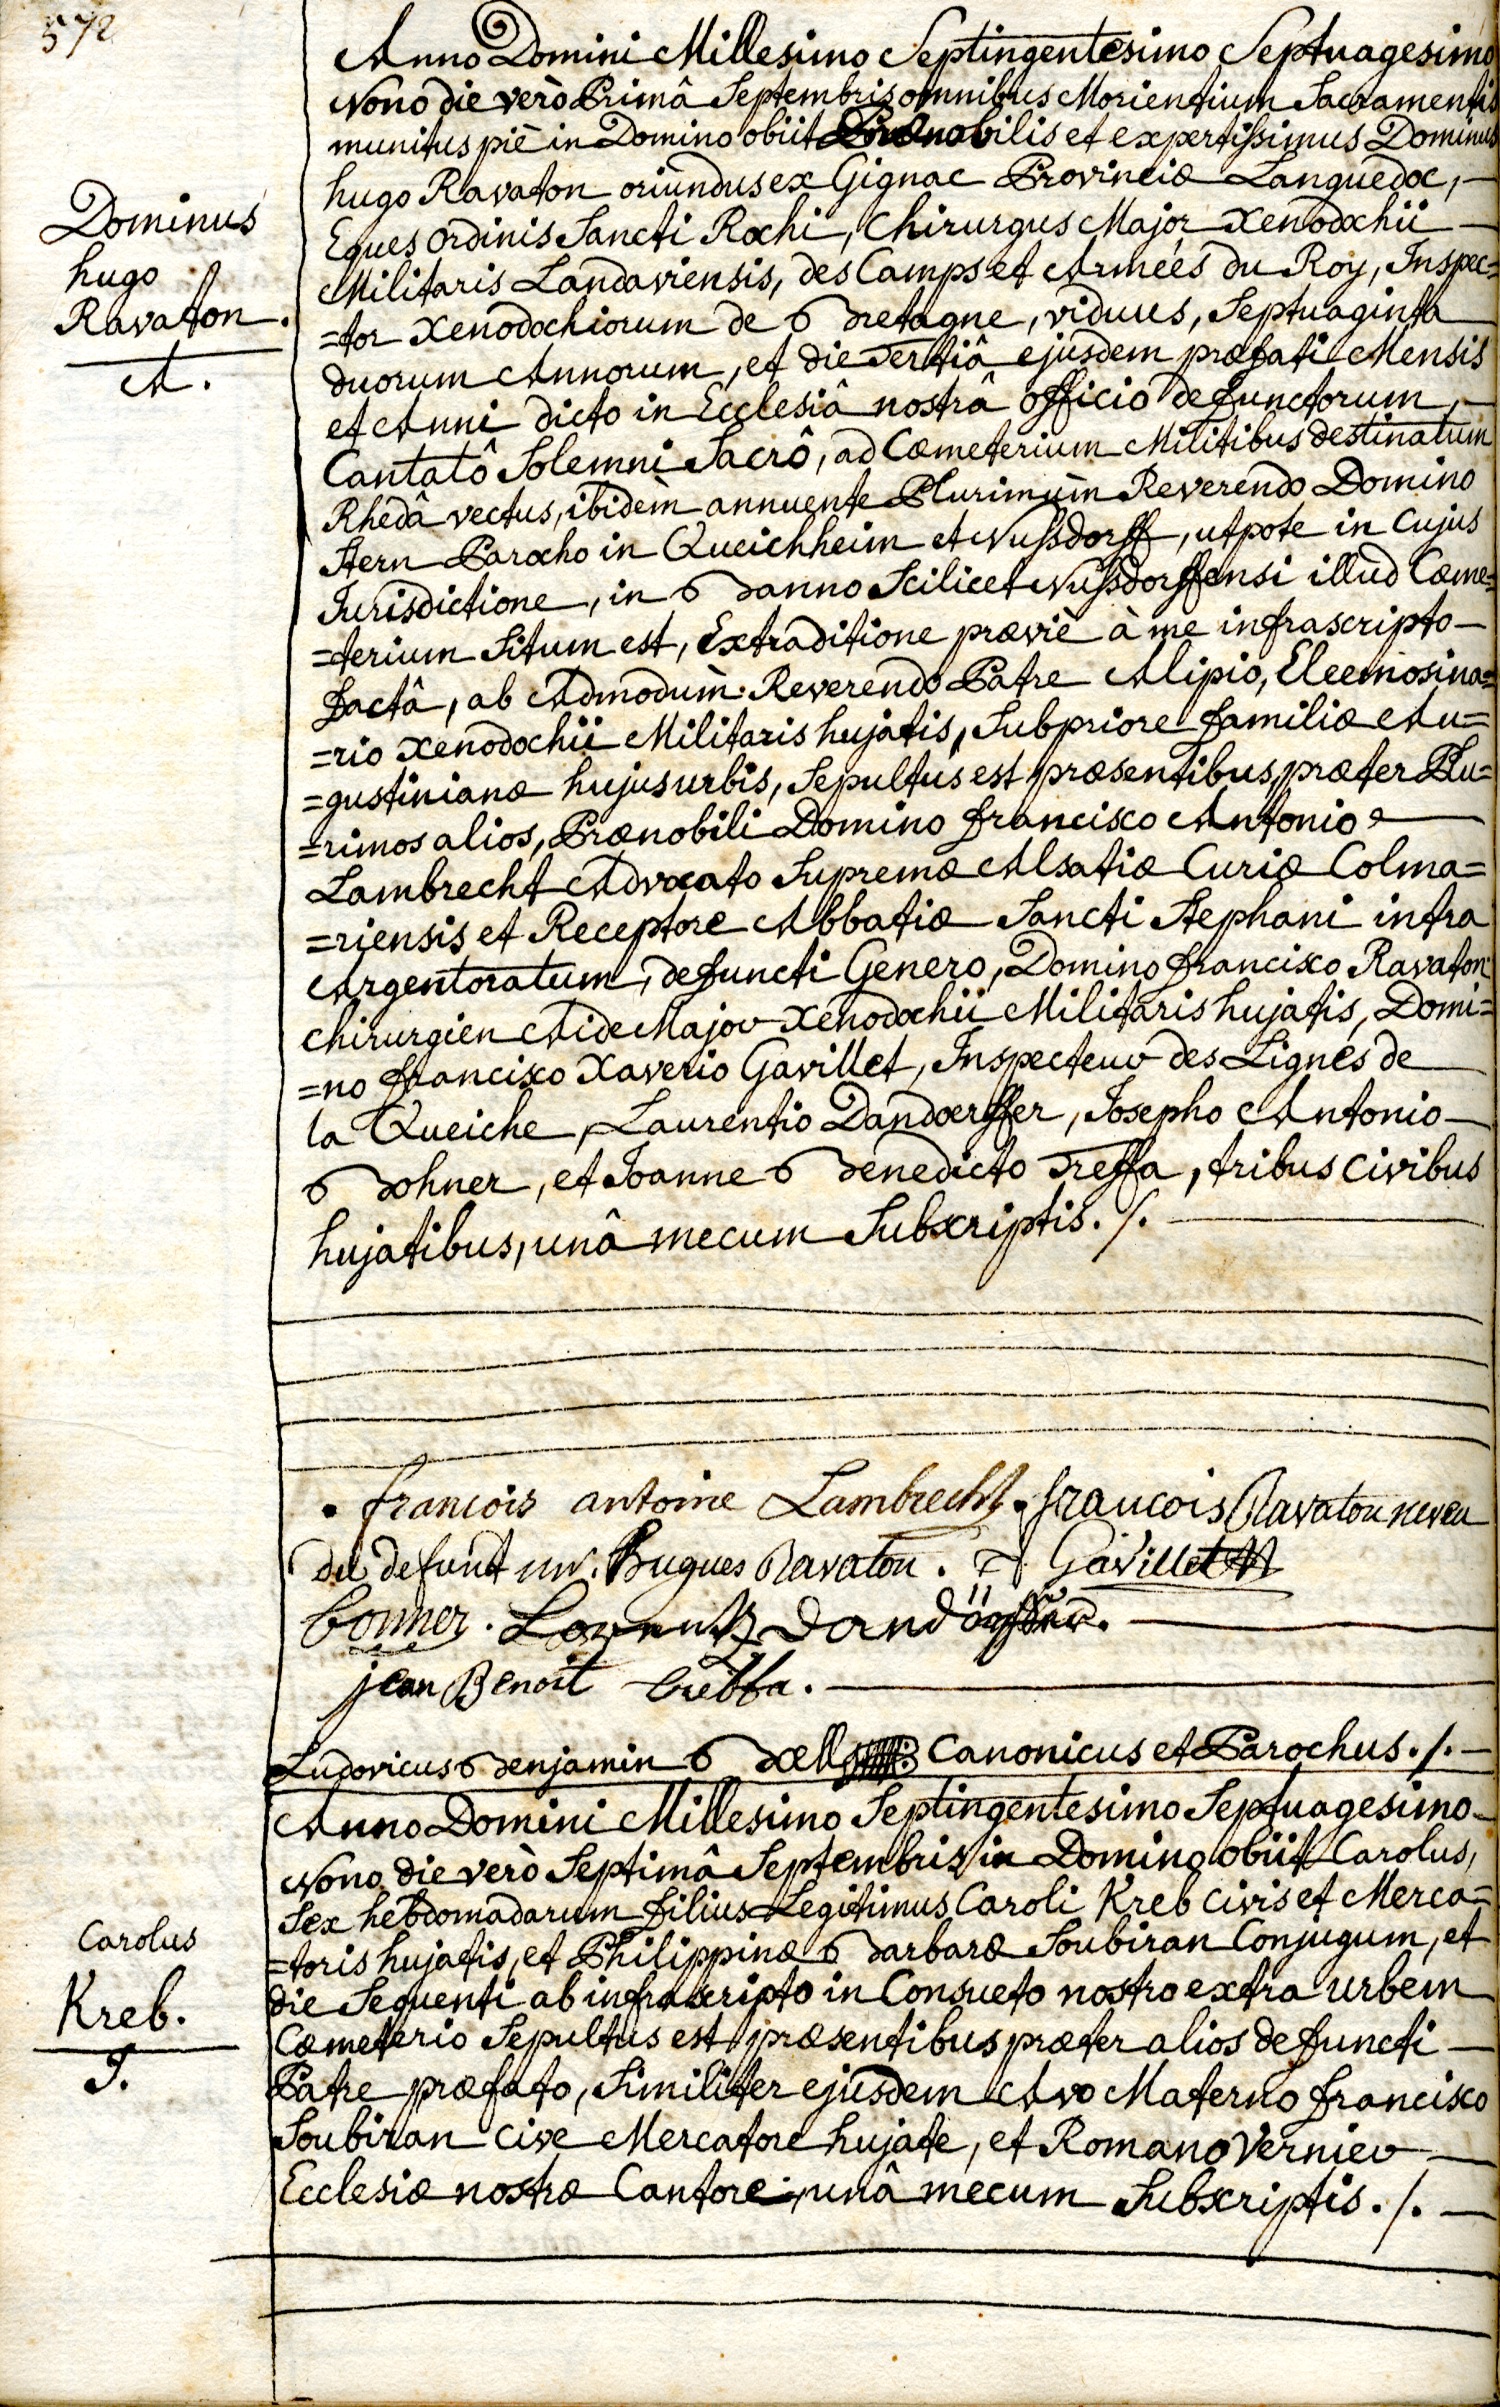 572
Anno Domini Millesimo Septingentesimo Septuagesimo
Nono die verò Primâ Septembris omnibus Morientium Sacramentis
munitus piè in Domino obiit Prænobilis et expertissimus Dominus
hugo Ravaton oriundus ex Gignac Provinciæ Languedoc,
Eques ordinis Sancti Rochi, Chirurgus Major Xenodochii
Militaris Landaviensis, des Camps et Armées du Roy, Inspec=
=tor Xenodochiorum de Bretagne, viduus, Septuaginta
duorum Annorum, et die Tertiâ ejusdem præfati Mensis
et Anni dicto in Ecclesiâ nostrâ officio defunctorum,
Cantatô Solemni Sacrô, ad Cœmeterium Militibus destinatum
Rhedâ vectus, ibidèm annuente Plurimùm Reverendo Domino
Stern Parocho in Queichheim et Nussdorff, utpote in Cujus
Jurisdictione, in Banno Scilicet Nussdorffensi illud Cœme=
=terium Situm est, Extraditione præviè à me infrascripto
factâ, ab Admodùm Reverendo Patre Alipio, Eleemosina=
=rio Xenodochii Militaris hujatis, Subpriore familiæ Au=
=gustinianæ hujus urbis, Sepultus est præsentibus, præter Plu=
=rimos alios, Prænobili Domino francisco Antonio
Lambrecht Advocato Supremæ Alsatiæ Curiæ Colma=
=riensis et Receptore Abbatiæ Sancti Stephani intra
Argentoratum, defuncti Genero, Domino francisco Ravaton
chirurgien Aide Major Xenodochii Militaris hujatis, Domi=
=no francisco Xaverio Gavillet, Inspecteur des Lignes de
la Queiche, Laurentio Dandoerffer, Josepho Antonio
Bohner, et Joanne Benedicto Treffa, tribus civibus
hujatibus, unâ mecum Subscriptis. /.
Dominus
hugo
Ravaton.
A.
françois antoine Lambrecht. francois Ravaton neveu
du defunt mr. Hugues Ravaton. Gavillet
bonner. Lorentz Dandörffer.
jean Benoit treffa.
Ludovicus Benjamin Boell Canonicus et Parochus. /.
Anno Domini Millesimo Septingentesimo Septuagesimo
Nono die verò Septimâ Septembris in Domino obiit Carolus,
Sex hebdomadarum filius Legitimus Caroli Kreb civis et Merca=
=toris hujatis, et Philippinæ Barbaræ Soubiran Conjugum, et
die Sequenti ab infrascripto in Consueto nostro extra urbem
Cœmeterio Sepultus est præsentibus præter alios defuncti
Patre præfato, Similiter ejusdem Avo Materno francisco
Soubiran Cive Mercatore hujate, et Romano Vernier
Ecclesiæ nostræ Cantore, unâ mecum Subscriptis. /.
Carolus
Kreb.
J.